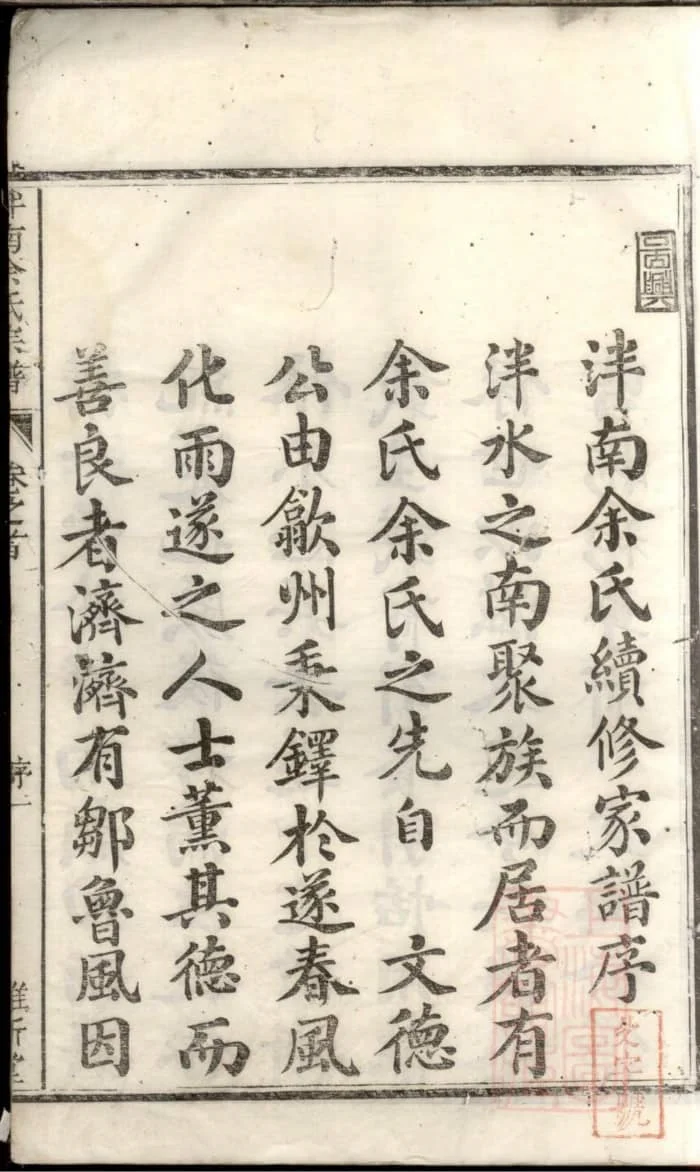 泮南余氏續修家譜序
泮水之南聚族而居者有
余氏余氏之先自 文德
公由歙州秉鐸於遂春風
化雨遂之人士薰其德而
善良者濟濟有鄒魯風因
泮南余氏宗譜 卷之首 序一